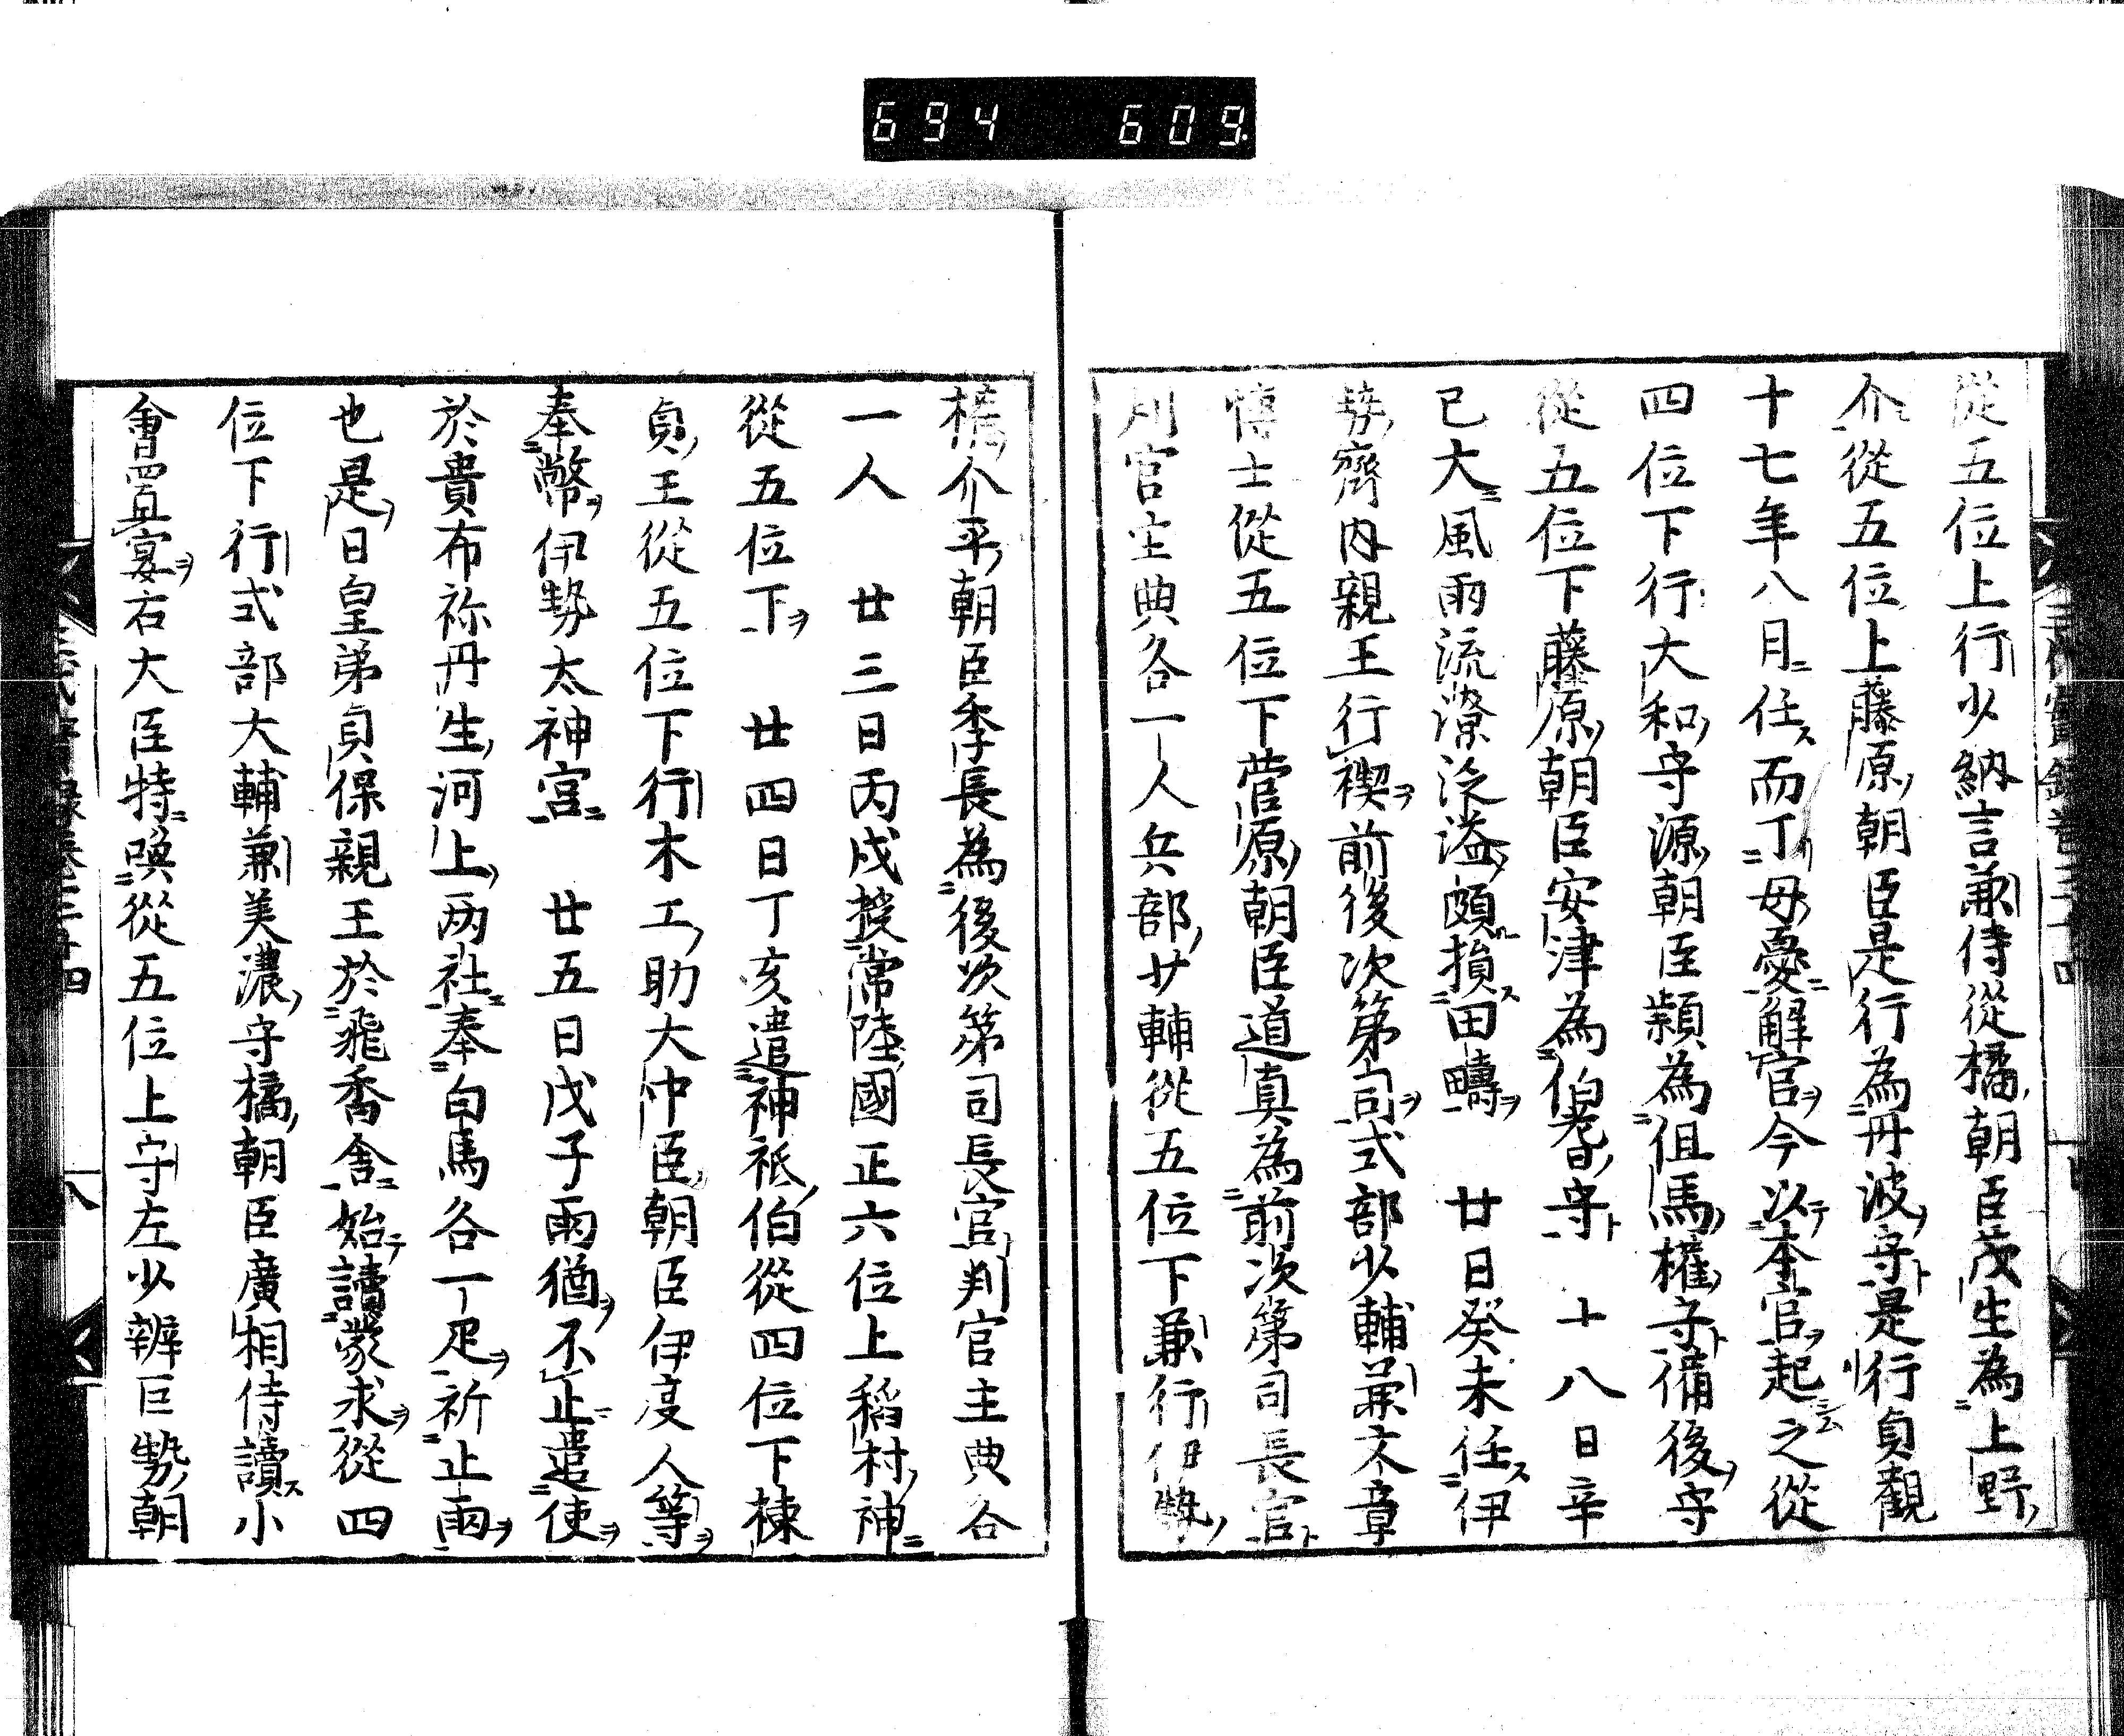 694 609
從五位上行少納言兼侍從橘朝臣茂生為上野
介從五位上藤原朝臣是行為丹波守是行貞觀
十七年八月任而丁母憂解官今以本官起之從
四位下行大和守源朝臣頴為但馬權守備後守
從五位下藤原朝臣安津為伯耆守 十八日辛
巳大風雨流潦泛溢頗損田疇 廿日癸未任伊
勢齊內親王行禊前後次第司式部少輔兼文章
博士從五位下菅原朝臣道真為前次第司長官
判官主典各一人兵部少輔從五位下兼行伊勢
權介平朝臣季長為後次第司長官判官主典各
一人 廿三日丙戌授常陸國正六位上稻村神
從五位下 廿四日丁亥遣神祇伯從四位下棟
貞王從五位下行木工助大中臣朝臣伊度人等
奉幣伊勢太神宮 廿五日戊子雨猶不止遣使
於貴布祢丹生河上兩社奉白馬各一疋祈止雨
也是日皇弟貞保親王於飛香舍始讀蒙求從四
位下行式部大輔兼美濃守橘朝臣廣相侍讀小
會置宴右大臣特喚從五位上守左少辨巨勢朝